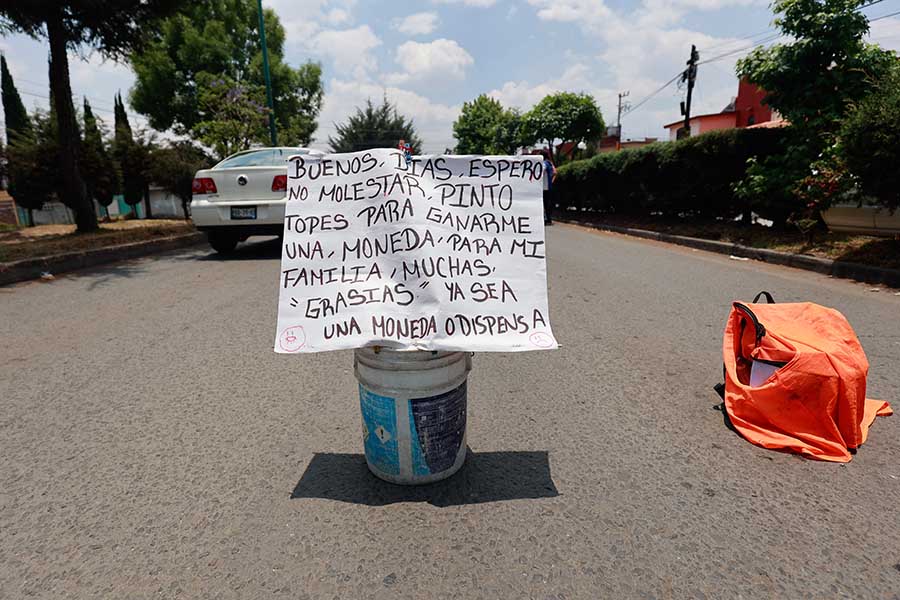 BUENOS, DIAS, ESPERO
NO MOLESTAR, PINTO
TOPES PARA GANARME
UNA, MONEDA, PARA MI
FAMILIA, MUCHAS,
"GRASIAS" YA SEA
UNA MONEDA O DISPENSA